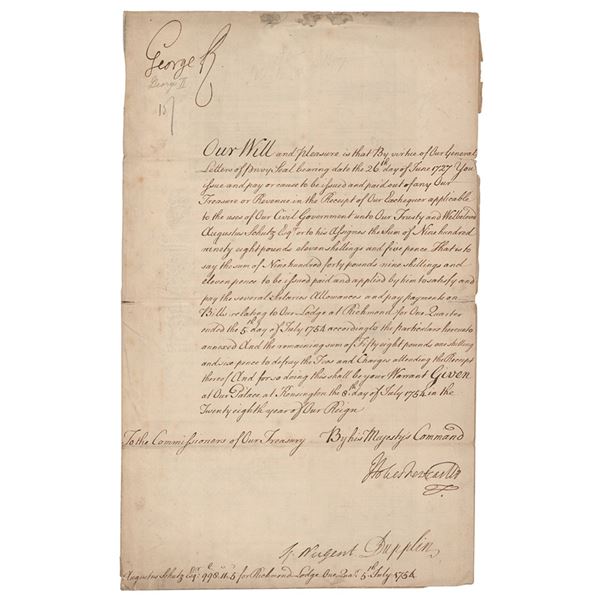 George R
George II
Our Will and pleasure is that By virtue of Our General
Letters of Privy Seal bearing date the 26th day of June 1727 You
issue and pay or cause to be issued and paid out of any Our
Treasure or Revenue in the Receipt of Our Exchequer applicable
to the uses of Our Civil Government unto Our Trusty and Welbeloved
Augustus Schutz Esqr. or to his Assignes the Sum of Nine hundred
ninety eight pounds eleven shillings and five pence That is to
say the sum of Nine hundred forty pounds nine shillings and
eleven pence to be issued paid and applied by him to satisfy and
pay the several Salaries Allowances and pay payment on
Bills relating to Our Lodge at Richmond for One Quarter
ended the 5th day of July 1754 according to the particulars hereunto
annexed And the remaining sum of Fifty eight pounds one shilling
and six pence to defray the Fees and Charges attending the Receipt
thereof And for so doing this shall be your Warrant Given
at Our Palace at Kensington the 8th day of July 1754 in the
Twenty eighth year of Our Reign
To the Commissioners of Our Treasury By his Majesty's Command
Holles Newcastle
Nugent Dupplin
Augustus Schutz Esqr. 998.11.5 for Richmond Lodge One Qua. 5th July 1754